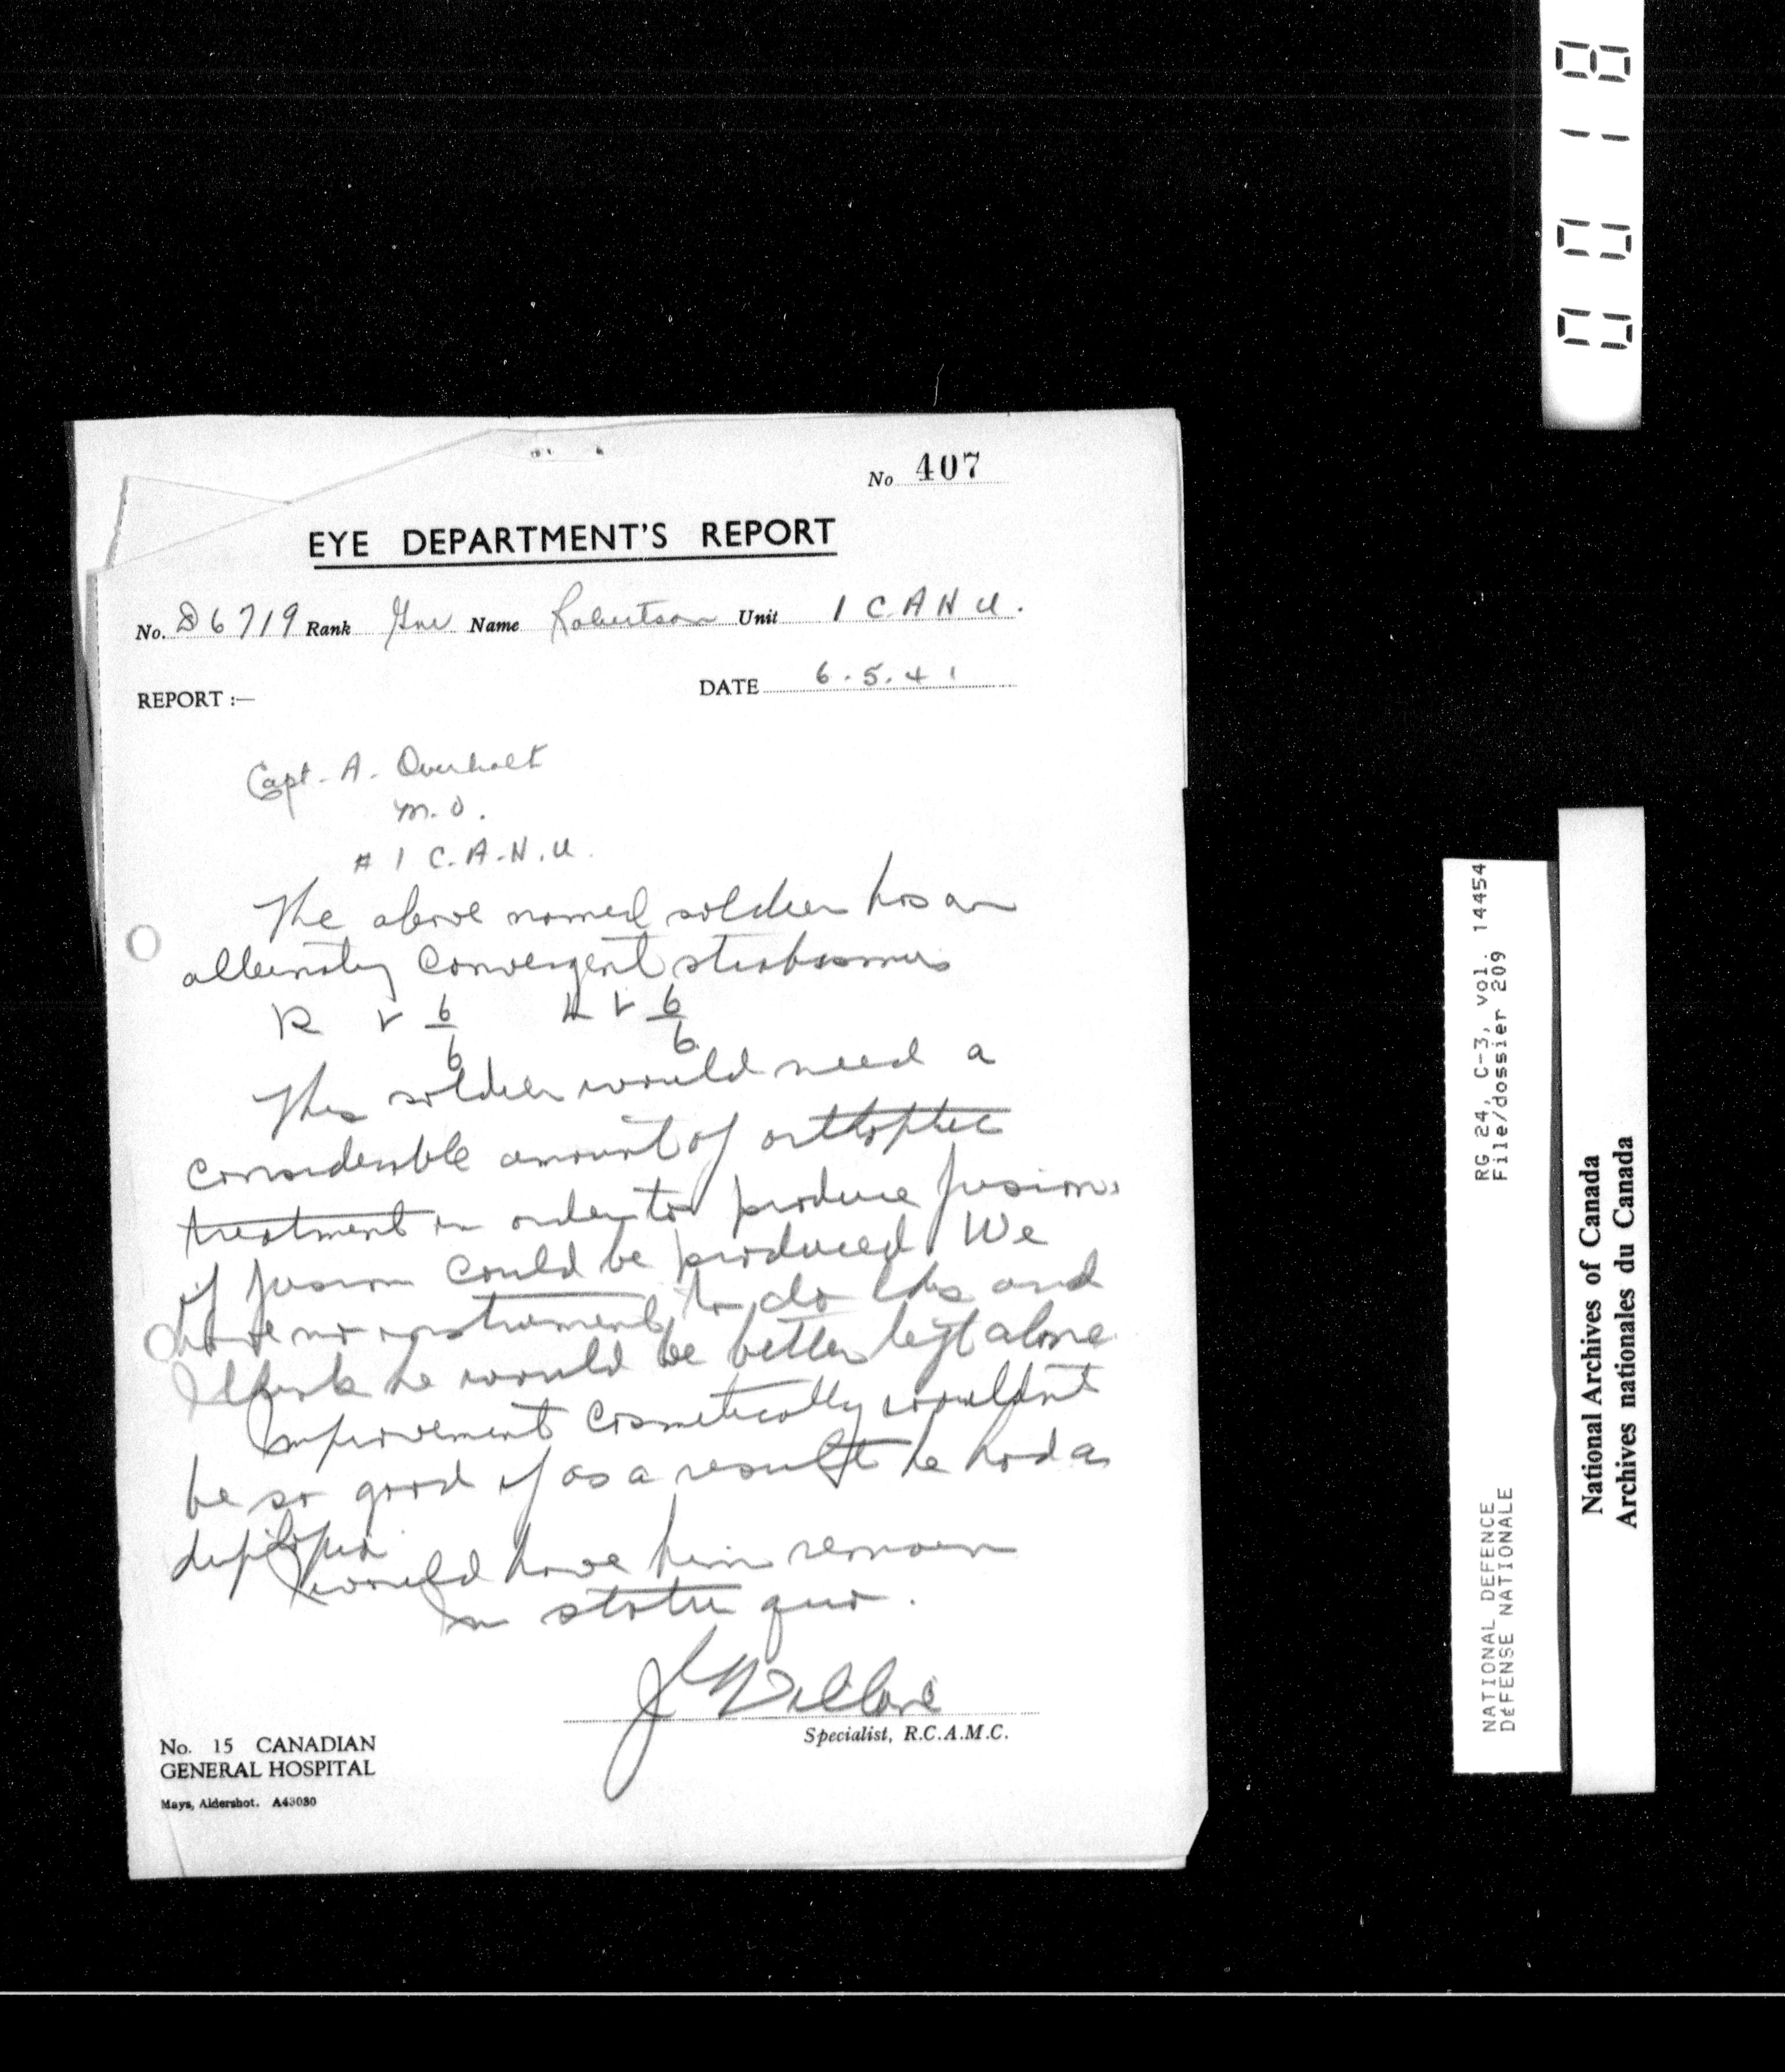 No 407
EYE DEPARTMENT'S REPORT
No. D6719 Rank Gnr Name Robertson Unit 1 C A H U.
REPORT :—
DATE 6.5.41
Capt. A. Overholt
M.O.
# 1 C.A.H.U.
The above named soldier has an
alternating convergent
R V 6/6 L V 6/6
This soldier would need a
considerable amount of orthoptic
treatment in order to produce fusion,
if fusion could be produced. We
have no instruments to do this and
I think he would be better left alone
Improvement cosmetically wouldn't
be so good if as a result he had a
I would have him remain
In statu quo.
Specialist, R.C.A.M.C.
No. 15 CANADIAN
GENERAL HOSPITAL
Mays, Aldershot. A43080
0018
RG 24, C-3, vol. 14454
File/dossier 209
NATIONAL DEFENCE
DéFENSE NATIONALE
National Archives of Canada
Archives nationales du Canada